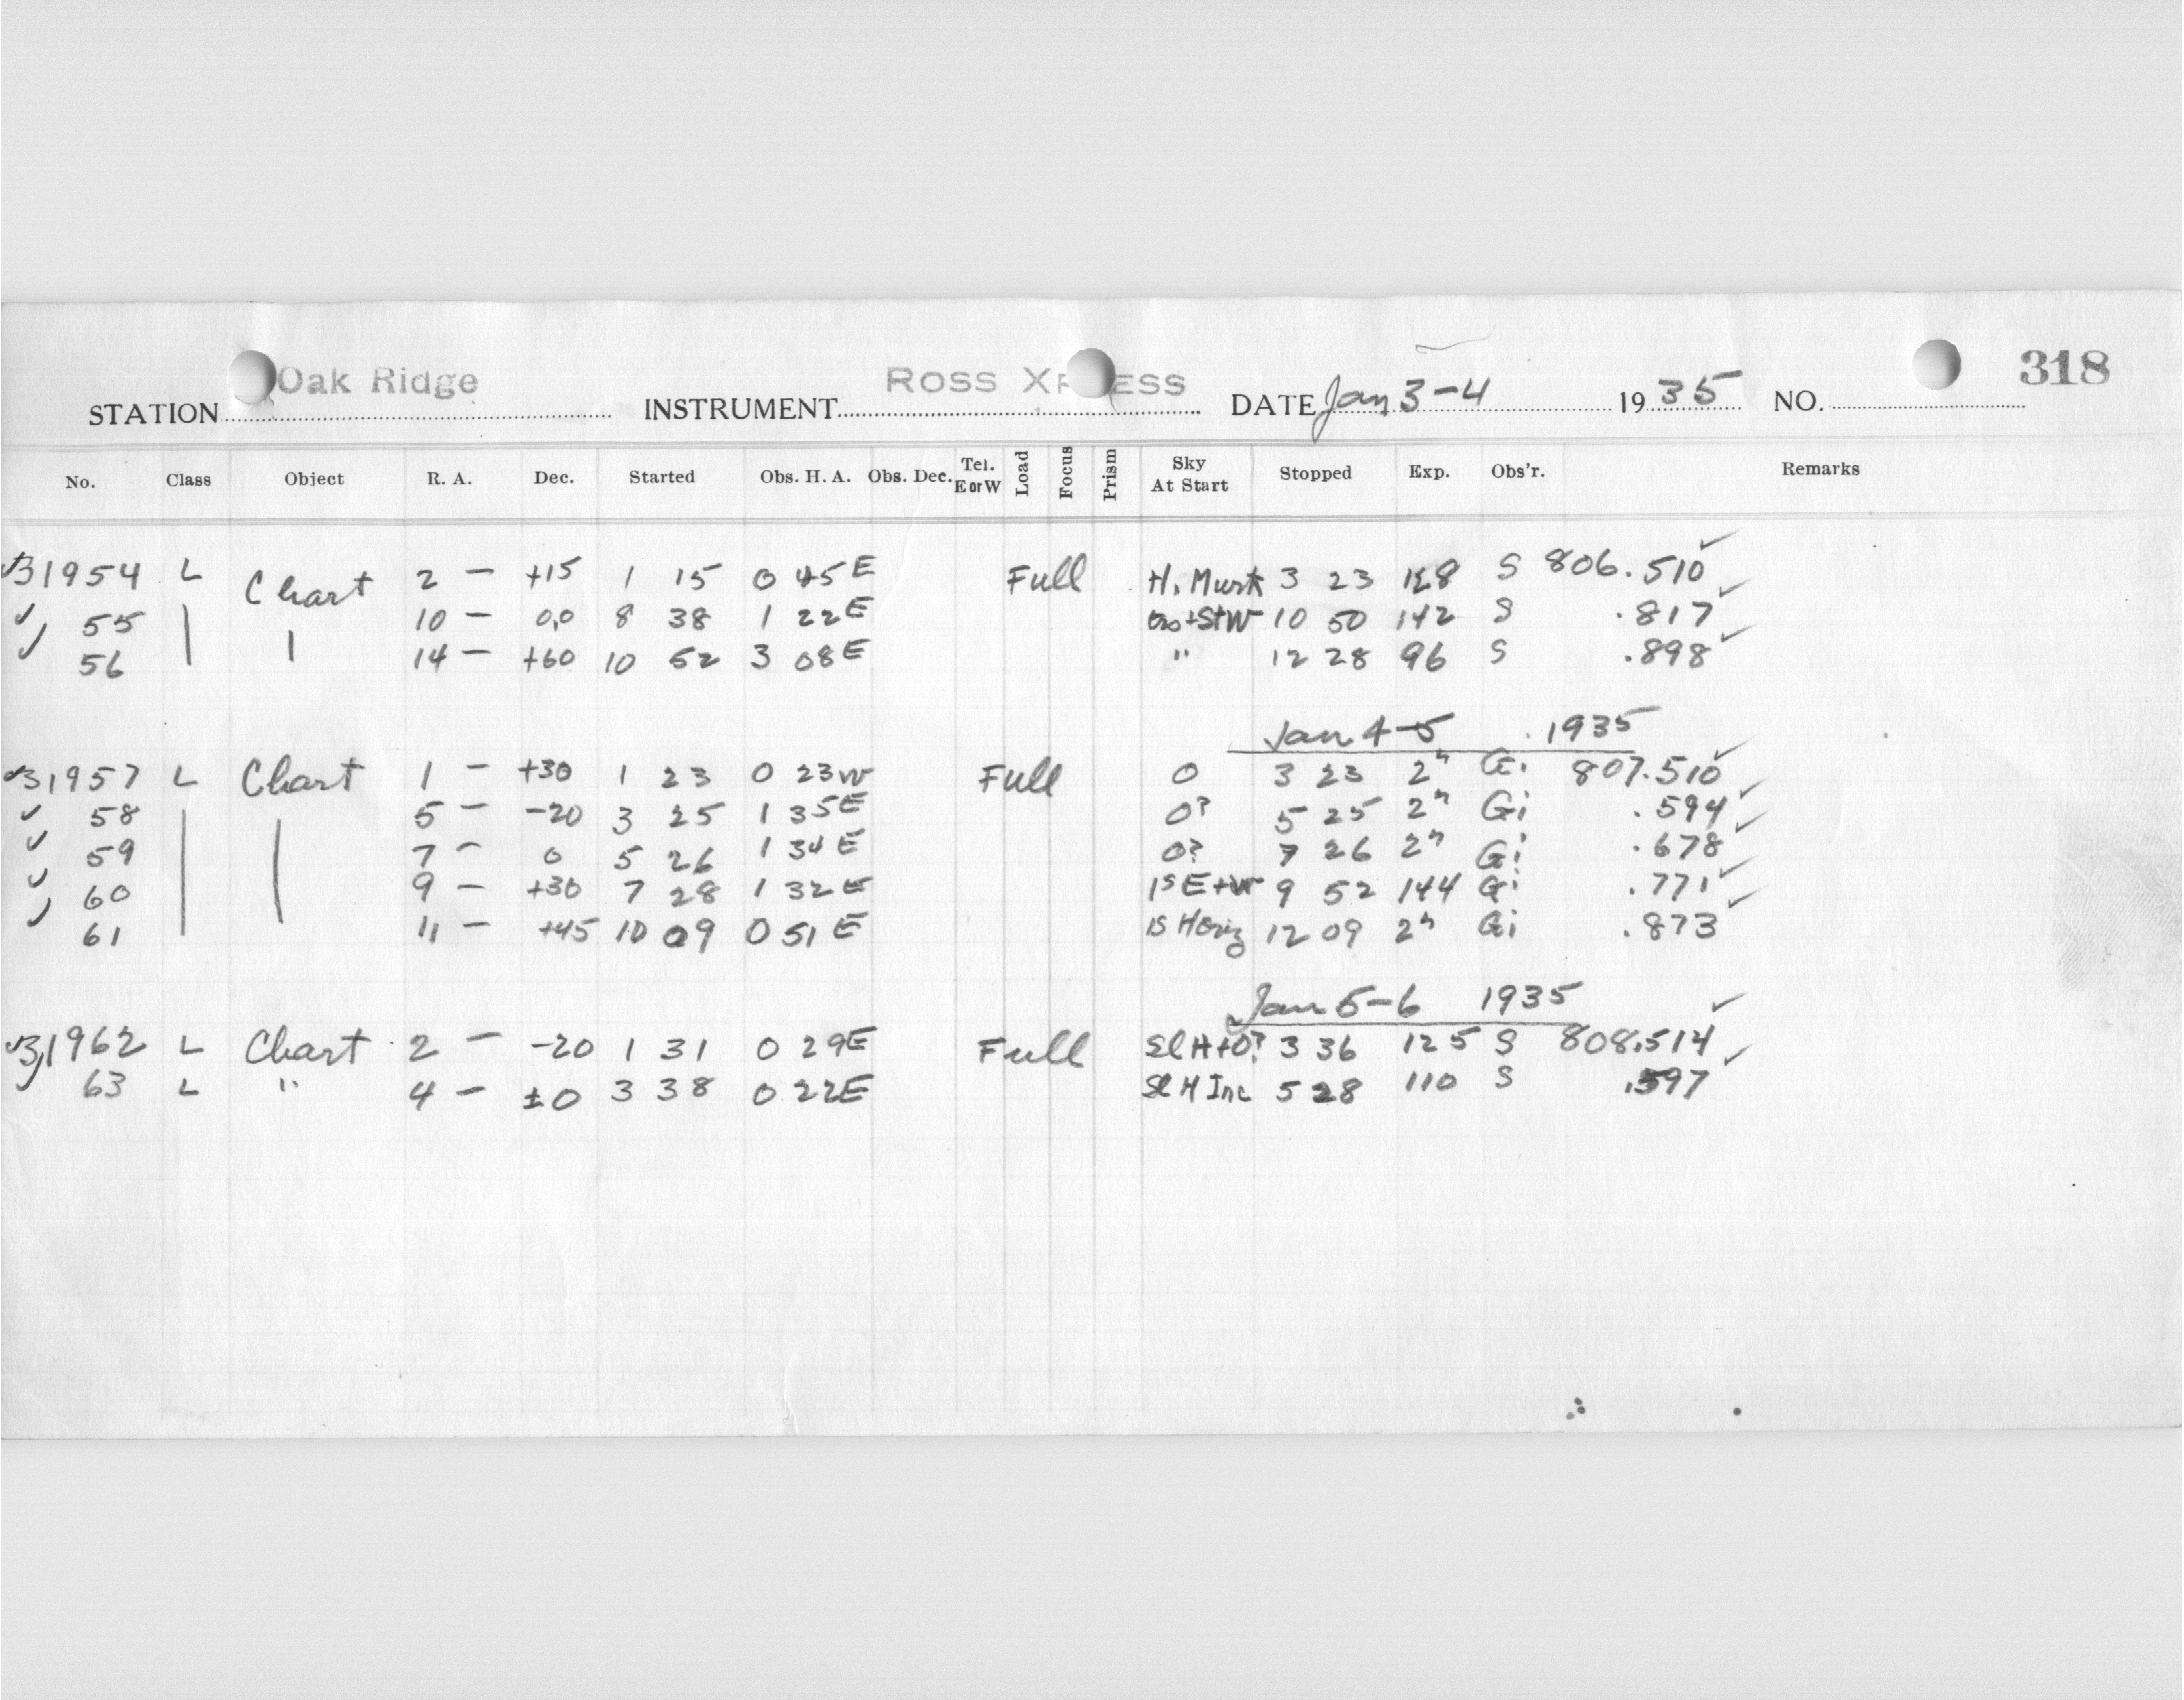 318
STATION Oak Ridge INSTRUMENT ROSS XPRESS DATE Jan 3-4 1935 NO.
No. Class Object R. A. Dec. Started Obs. H. A. Obs. Dec. Tel. E or W Load Focus Prism Sky At Start Stopped Exp. Obs'r. Remarks
31954 L Chart 2 - +15 1 15 0 45E Full H. Murk 3 23 128 S 806.510
55 10 - 0,0 8 38 1 22E +StW 10 50 142 S .817
56 14 - +60 10 52 3 08E " 12 28 96 S .898
Jan 4-5 1935
31957 L Chart 1 - +30 1 23 0 23W Full 0 3 23 2h Gi 807.510
58 5 - -20 3 25 1 35E 0? 5 25 2h Gi .594
59 7 - 0 5 26 1 34E 0? 7 26 2h Gi .678
60 9 - +30 7 28 1 32E 1S E+W 9 52 144 Gi .771
61 11 - +45 10 09 0 51E 1S Horiz 12 09 2h Gi .873
Jan 5-6 1935
31962 L Chart 2 - -20 1 31 0 29E Full Sl H+0? 3 36 125 S 808.514
63 L " 4 - ±0 3 38 0 22E Sl H Inc 5 28 110 S .597